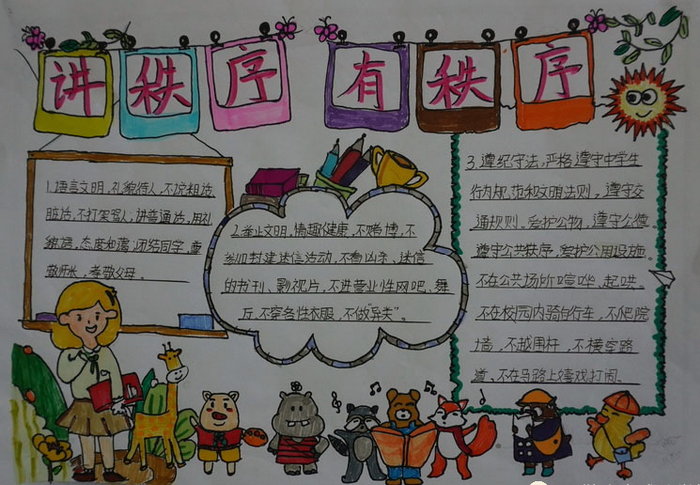 讲秩序 有秩序
1.语言文明,礼貌待人,不说粗话
脏话,不打架骂人,讲普通话,用礼
貌语,态度和蔼,团结同学,尊
敬师长,孝敬父母。
2.举止文明,情趣健康,不赌博,不
参加封建迷信活动,不看凶杀、迷信
的书刊、影视片,不进营业性网吧、舞
厅,不穿名牌衣服,不做"异夫"。
3.遵纪守法,严格遵守中学生
行为规范和文明法则,遵守交
通规则,爱护公物,遵守公德。
遵守公共秩序,爱护公用设施。
不在公共场所喧哗、起哄。
不在校园内骑自行车,不爬院
墙,不越围栏,不横穿路
道,不在马路上嬉戏打闹。